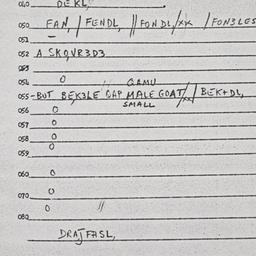 040 DEKL.
050 FAN, / FENDL, // FONDL/XK / FON3LES
051
052 A SKQVR3D3
053
054 O GAMU
055 -BUT BEK3LE CAP MALE GOAT/X/ BEK+DL,
056 O SMALL
057 O
058 O
059 O
060 O
070 O
O //
080
DRAJFASL,